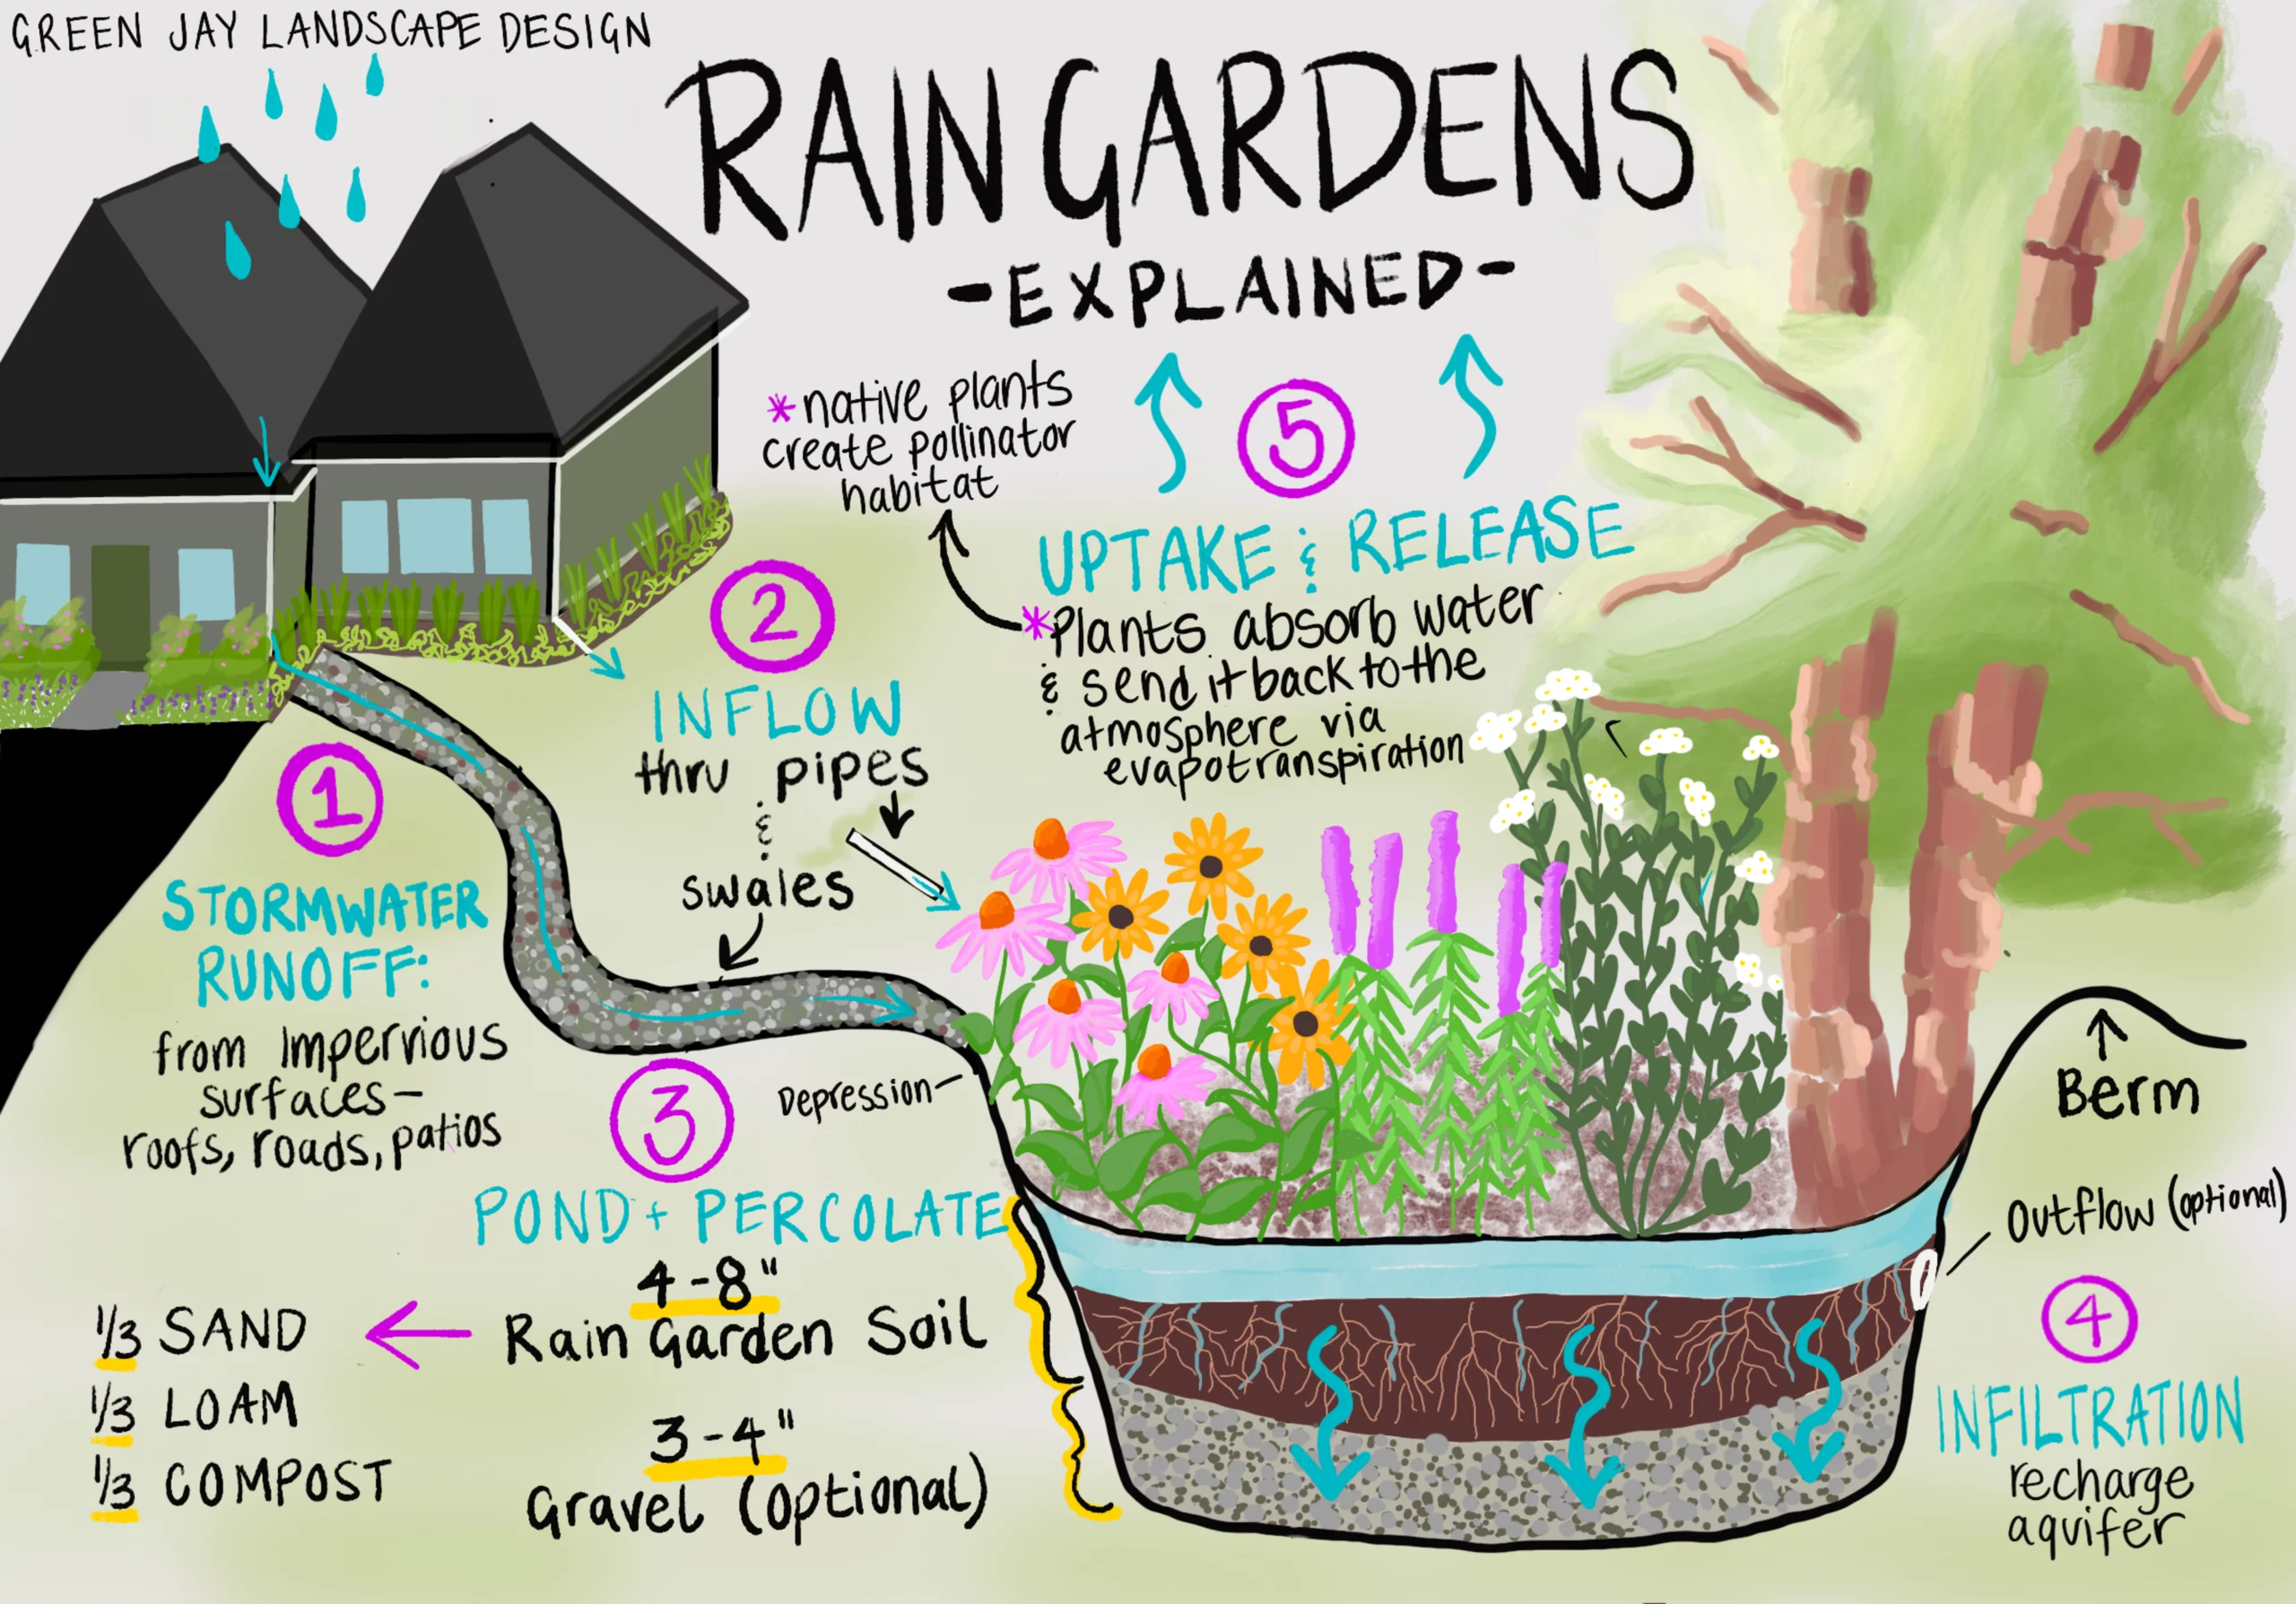 GREEN JAY LANDSCAPE DESIGN
RAIN GARDENS
-EXPLAINED-
*native plants
create pollinator
habitat
5
UPTAKE & RELEASE
*Plants absorb water
& send it back to the
atmosphere via
evapotranspiration
2
INFLOW
thru pipes
&
swales
1
STORMWATER
RUNOFF:
from Impervious
surfaces-
roofs, roads, patios
3
Depression
POND + PERCOLATE
4-8"
Rain Garden Soil
1/3 SAND
1/3 LOAM
1/3 COMPOST
3-4"
Gravel (optional)
Berm
Outflow (optional)
4
INFILTRATION
recharge
aquifer